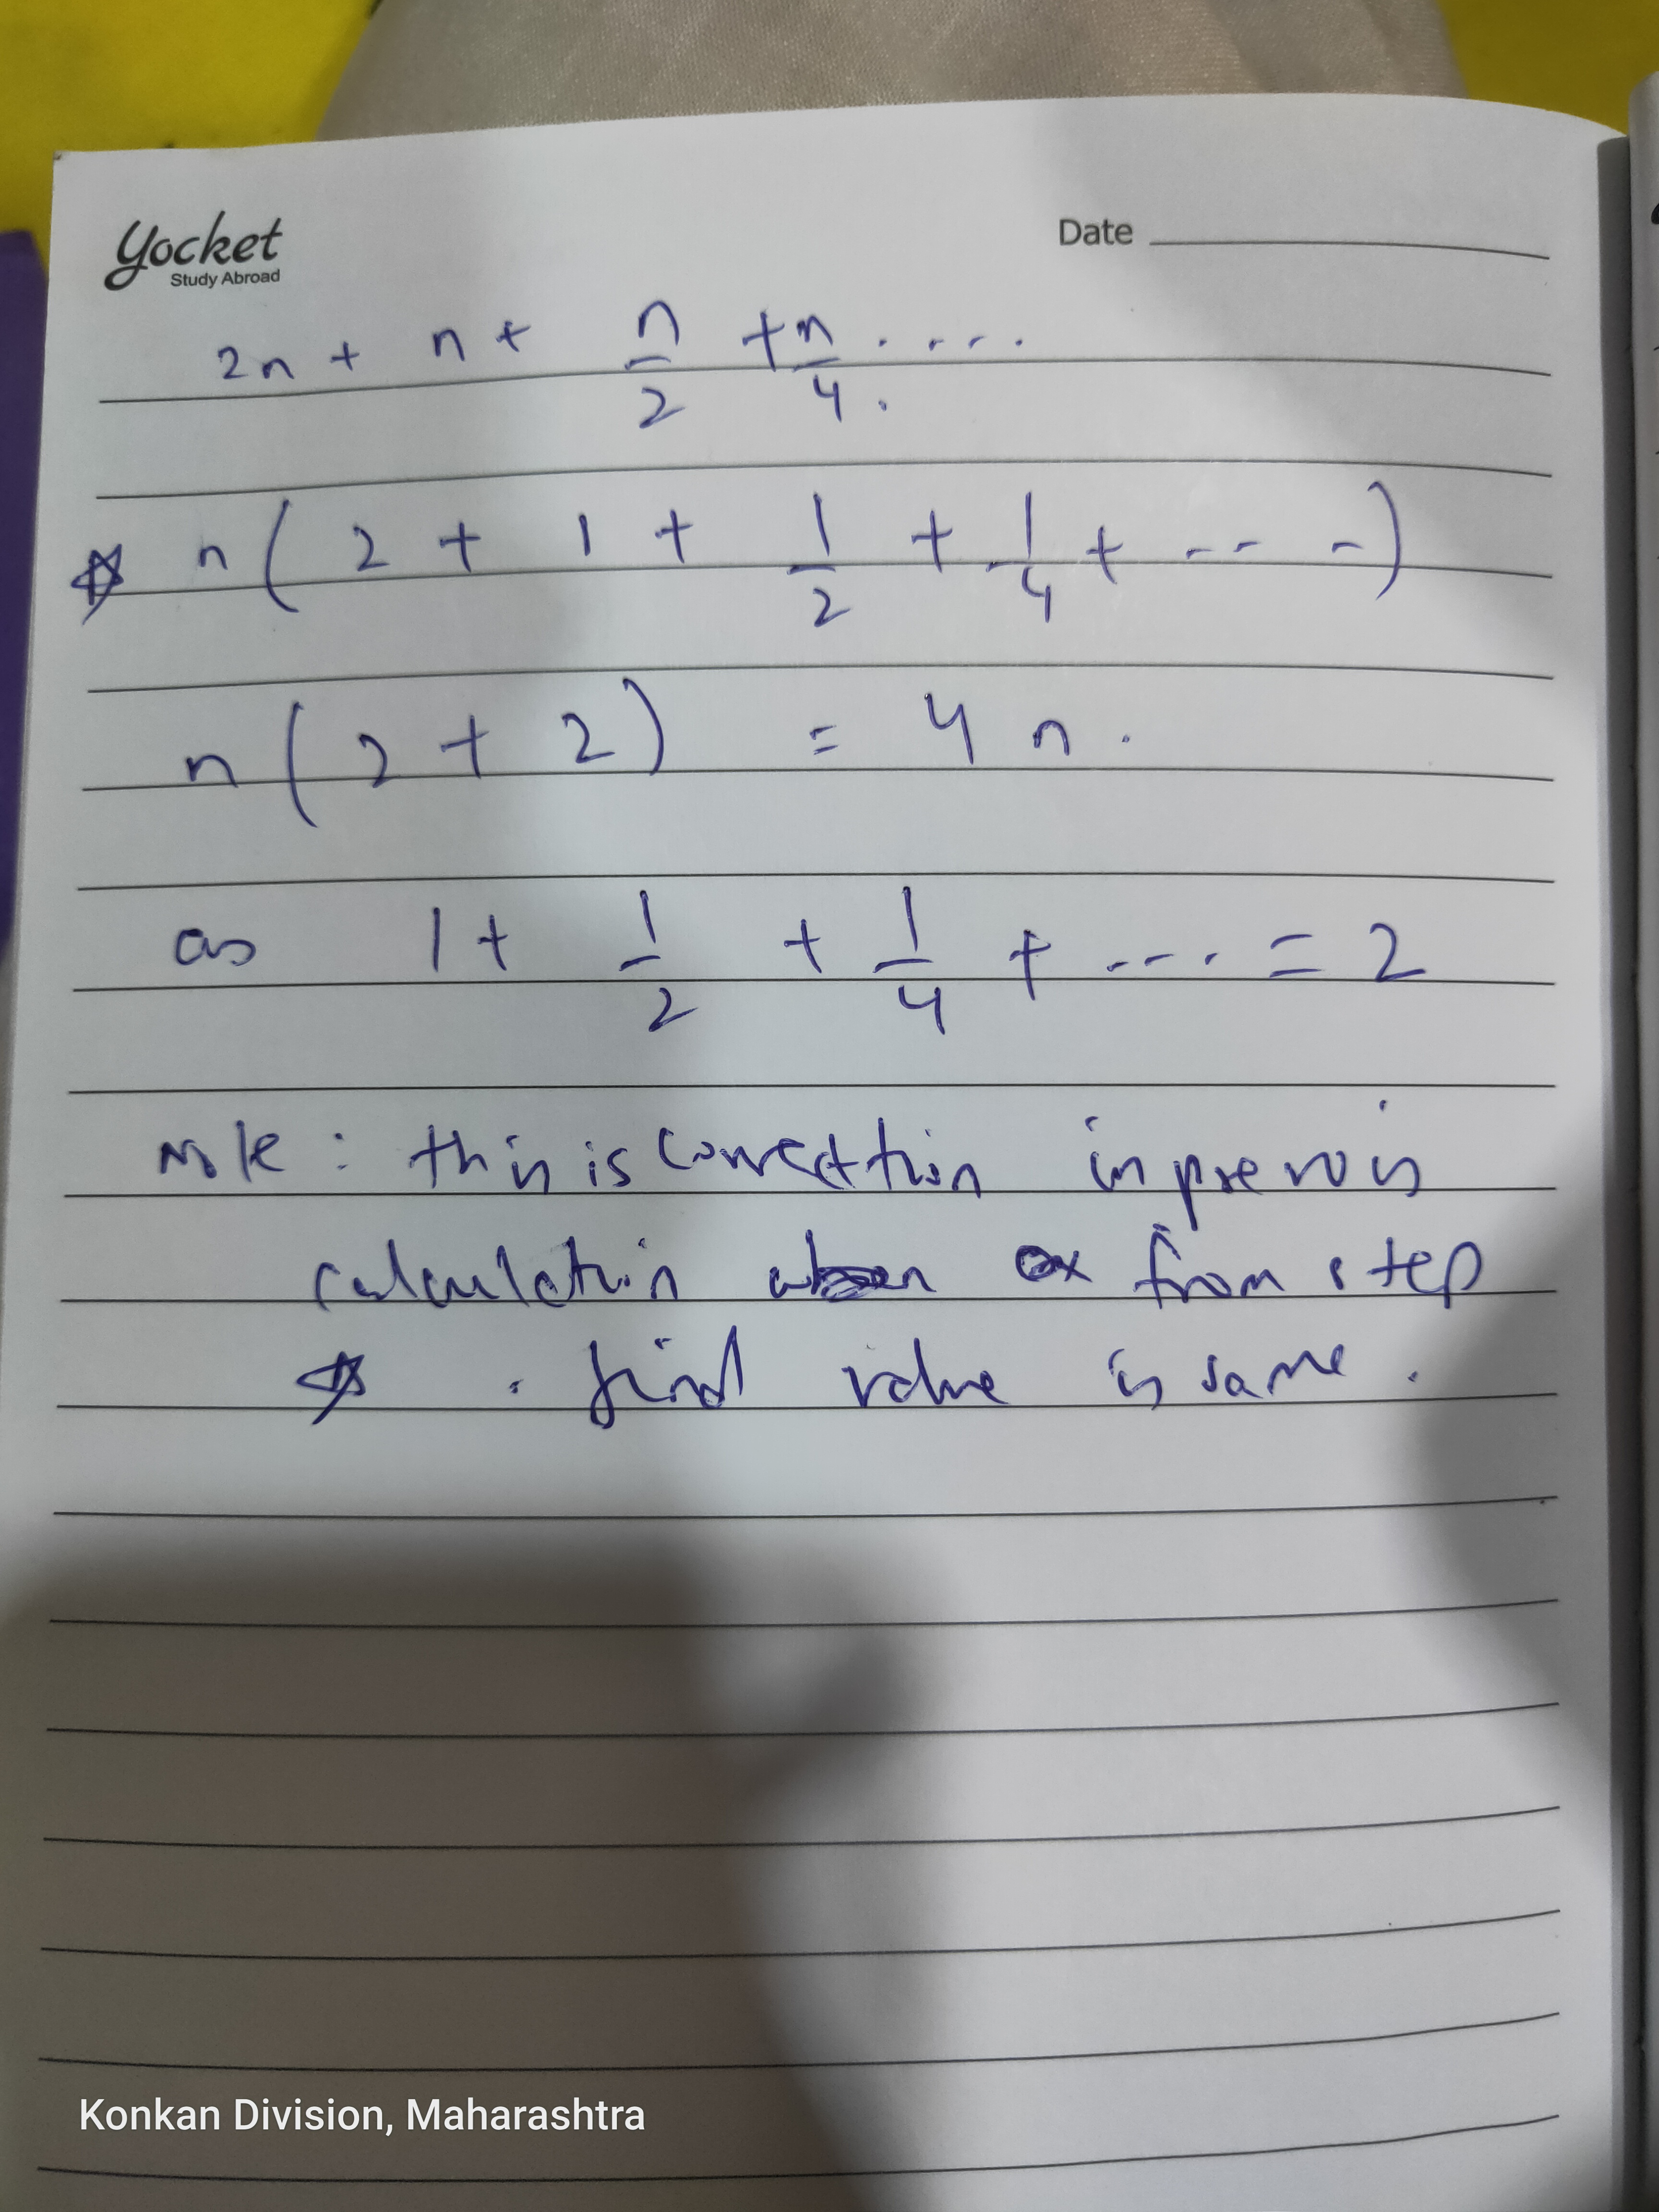 yocket
Study Abroad
Date
2n + n + n/2 + n/4 . . . . .
☆ n ( 2 + 1 + 1/2 + 1/4 + -- - - )
n ( 2 + 2 ) = 4 n .
as 1 + 1/2 + 1/4 + ---. = 2
Note : this is correction in
calculation from step
☆ . final value is same .
Konkan Division, Maharashtra